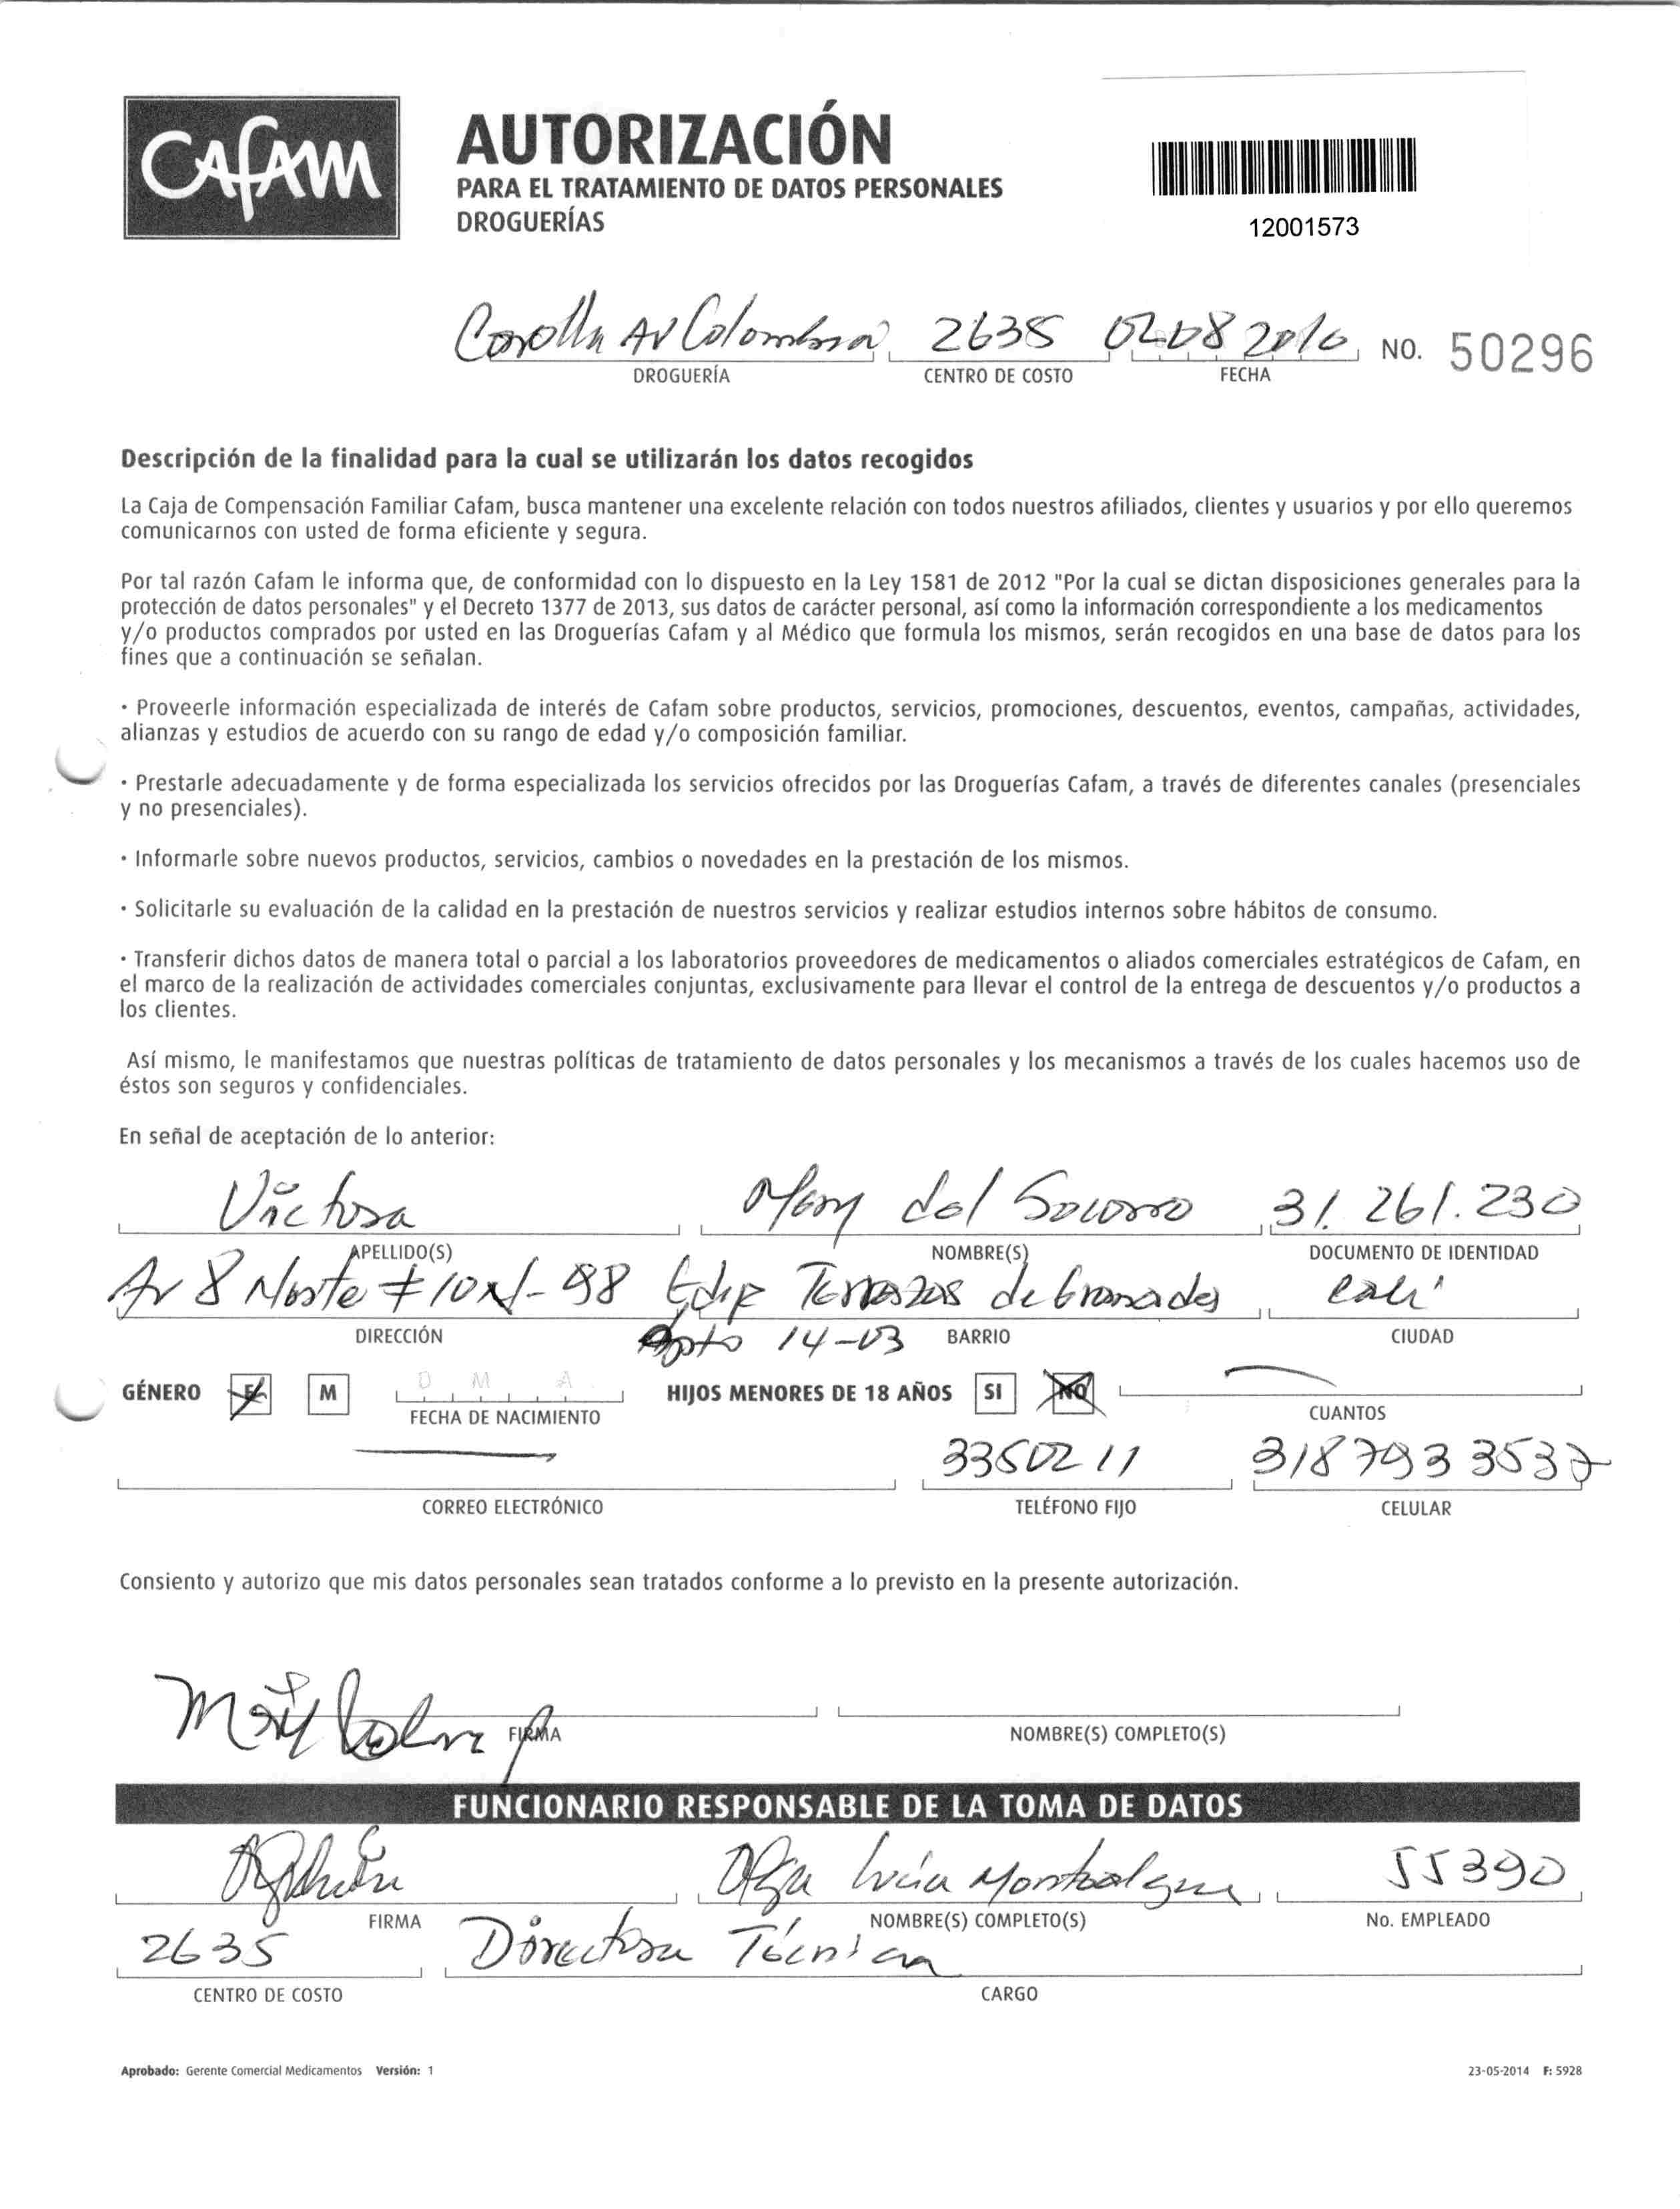 Cafam
AUTORIZACIÓN
PARA EL TRATAMIENTO DE DATOS PERSONALES
DROGUERÍAS
12001573
Av Colombia 2635 02 08 2016 NO. 50296
DROGUERÍA CENTRO DE COSTO FECHA
Descripción de la finalidad para la cual se utilizarán los datos recogidos
La Caja de Compensación Familiar Cafam, busca mantener una excelente relación con todos nuestros afiliados, clientes y usuarios y por ello queremos
comunicarnos con usted de forma eficiente y segura.
Por tal razón Cafam le informa que, de conformidad con lo dispuesto en la Ley 1581 de 2012 "Por la cual se dictan disposiciones generales para la
protección de datos personales" y el Decreto 1377 de 2013, sus datos de carácter personal, así como la información correspondiente a los medicamentos
y/o productos comprados por usted en las Droguerías Cafam y al Médico que formula los mismos, serán recogidos en una base de datos para los
fines que a continuación se señalan.
· Proveerle información especializada de interés de Cafam sobre productos, servicios, promociones, descuentos, eventos, campañas, actividades,
alianzas y estudios de acuerdo con su rango de edad y/o composición familiar.
· Prestarle adecuadamente y de forma especializada los servicios ofrecidos por las Droguerías Cafam, a través de diferentes canales (presenciales
y no presenciales).
· Informarle sobre nuevos productos, servicios, cambios o novedades en la prestación de los mismos.
· Solicitarle su evaluación de la calidad en la prestación de nuestros servicios y realizar estudios internos sobre hábitos de consumo.
· Transferir dichos datos de manera total o parcial a los laboratorios proveedores de medicamentos o aliados comerciales estratégicos de Cafam, en
el marco de la realización de actividades comerciales conjuntas, exclusivamente para llevar el control de la entrega de descuentos y/o productos a
los clientes.
Así mismo, le manifestamos que nuestras políticas de tratamiento de datos personales y los mecanismos a través de los cuales hacemos uso de
éstos son seguros y confidenciales.
En señal de aceptación de lo anterior:
Victoria Mary del Socorro 31.261.230
APELLIDO(S) NOMBRE(S) DOCUMENTO DE IDENTIDAD
Av 8 Norte # 10N-98 Edif Terrazas de Granada Cali
DIRECCIÓN BARRIO CIUDAD
Apto 14-03
GÉNERO F M D M A HIJOS MENORES DE 18 AÑOS SI NO
FECHA DE NACIMIENTO CUANTOS
3350211 318 793 3537
CORREO ELECTRÓNICO TELÉFONO FIJO CELULAR
Consiento y autorizo que mis datos personales sean tratados conforme a lo previsto en la presente autorización.
FIRMA NOMBRE(S) COMPLETO(S)
FUNCIONARIO RESPONSABLE DE LA TOMA DE DATOS
Olga Lucía 55390
FIRMA NOMBRE(S) COMPLETO(S) No. EMPLEADO
2635 Directora Técnica
CENTRO DE COSTO CARGO
Aprobado: Gerente Comercial Medicamentos Versión: 1 23-05-2014 F: 5928